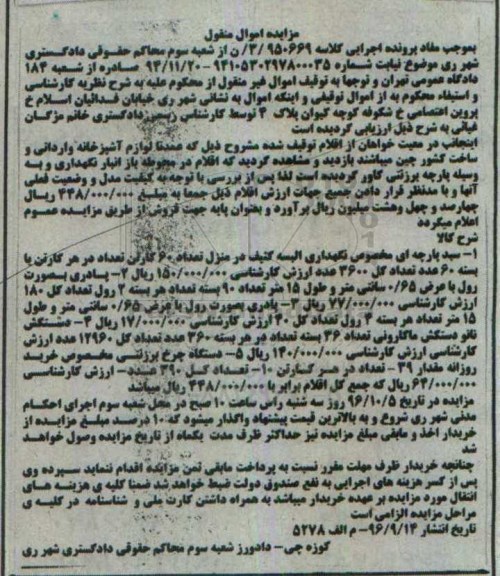 مزایده اموال منقول
بموجب مفاد پرونده اجرایی کلاسه ۹۵۰۶۶۹ /۳/ ن از شعبه سوم محاکم حقوقی دادگستری
شهر ری موضوع نیابت شماره ۹۴۱۰۵۳۰۲۹۷۸۰۰۰۳۵ -۹۴/۱۱/۲۰ صادره از شعبه ۱۸۴
دادگاه عمومی تهران و توجها به توقیف اموال غیر منقول از محکوم علیه به شرح نظریه کارشناسی
و استیفاء محکوم به از اموال توقیفی و اینکه اموال به نشانی شهر ری خیابان فدائیان اسلام خ
پروین اعتصامی خ شکوفه کوچه کیوان پلاک ۴ توسط کارشناس رسمی دادگستری خانم مژگان
غیاثی به شرح ذیل ارزیابی گردیده است
اینجانب در معیت خواهان از اقلام توقیف شده مشروح ذیل که عمدتا لوازم آشپزخانه وارداتی و
ساخت کشور چین میباشند بازدید و مشاهده گردید که اقلام در محوطه باز انبار نگهداری و به
وسیله پارچه برزنتی کاور گردیده است لذا پس از بررسی با توجه به کیفیت مدل و وضعیت فعلی
آنها و با مدنظر قرار دادن جمیع جهات ارزش اقلام ذیل جمعا به مبلغ ۴۴۸/۰۰۰/۰۰۰ ریال
چهارصد و چهل وهشت میلیون ریال برآورد و بعنوان پایه جهت فروش از طریق مزایده عموم
اعلام میگردد
شرح کالا
۱- سبد پارچه ای مخصوص نگهداری البسه کثیف در منزل تعداد ۶۰ کارتن تعداد در هر کارتن یا
بسته ۶۰ عدد تعداد کل ۳۶۰۰ عدد ارزش کارشناسی ۱۵۰/۰۰۰/۰۰۰ ریال ۲- پادری بصورت
رول با عرض ۰/۶۵ سانتی متر و طول ۱۵ متر تعداد ۹۰ بسته تعداد هر بسته ۲ رول تعداد کل ۱۸۰
ارزش کارشناسی ۷۷/۰۰۰/۰۰۰ ریال ۳- پادری بصورت رول با عرض ۰/۶۵ سانتی متر و طول
۱۵ متر تعداد هر بسته ۴ رول تعداد کل ۴۰ ارزش کارشناسی ۱۷/۰۰۰/۰۰۰ ریال ۴- دستکش
نانو دستکش ماکارونی تعداد ۳۶ بسته تعداد در هر بسته ۳۶۰ عدد تعداد کل ۱۲۹۶۰ عدد ارزش
کارشناسی ارزش کارشناسی ۱۴۰/۰۰۰/۰۰۰ ریال ۵- دستگاه چرخ برزنتی مخصوص خرید
روزانه مقدار ۳۹ - تعداد در هر کارتن ۱۰- تعداد کل ۳۹۰ عدد- ارزش کارشناسی
۶۴/۰۰۰/۰۰۰ ریال که جمع کل اقلام برابر با ۴۴۸/۰۰۰/۰۰۰ ریال میباشد
مزایده در تاریخ ۹۶/۱۰/۵ روز سه شنبه راس ساعت ۱۰ صبح در محل شعبه سوم اجرای احکام
مدنی شهر ری شروع و به بالاترین قیمت پیشنهاد واگذار میشود که ۱۰ درصد مبلغ مزایده از
خریدار اخذ و مابقی مبلغ مزایده نیز حداکثر ظرف مدت یکماه از تاریخ مزایده وصول خواهد
شد
چنانچه خریدار ظرف مهلت مقرر نسبت به پرداخت مابقی ثمن مزایده اقدام ننماید سپرده وی
پس از کسر هزینه های اجرایی به نفع صندوق دولت ضبط خواهد شد ضمنا کلیه ی هزینه های
انتقال مورد مزایده بر عهده خریدار میباشد به همراه داشتن کارت ملی و شناسنامه در کلیه ی
مراحل مزایده الزامی است
تاریخ انتشار ۹۶/۹/۱۴- م الف ۵۲۷۸
کوزه چی- دادورز شعبه سوم محاکم حقوقی دادگستری شهر ری